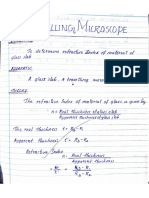 TRAVELLING MICROSCOPE
To determine refractive index of material of
glass slab
APPARATUS
A glass slab, a travelling
THEORY
The refractive index of material of glass is given by
n = Real thickness of glass slab
Apparent thickness of slab
The real thickness t = R3 - R1
Apparent thickness = R3 - R2
Refractive Index
n = Real thickness
Apparent thickness
= R3 - R1
R3 - R2